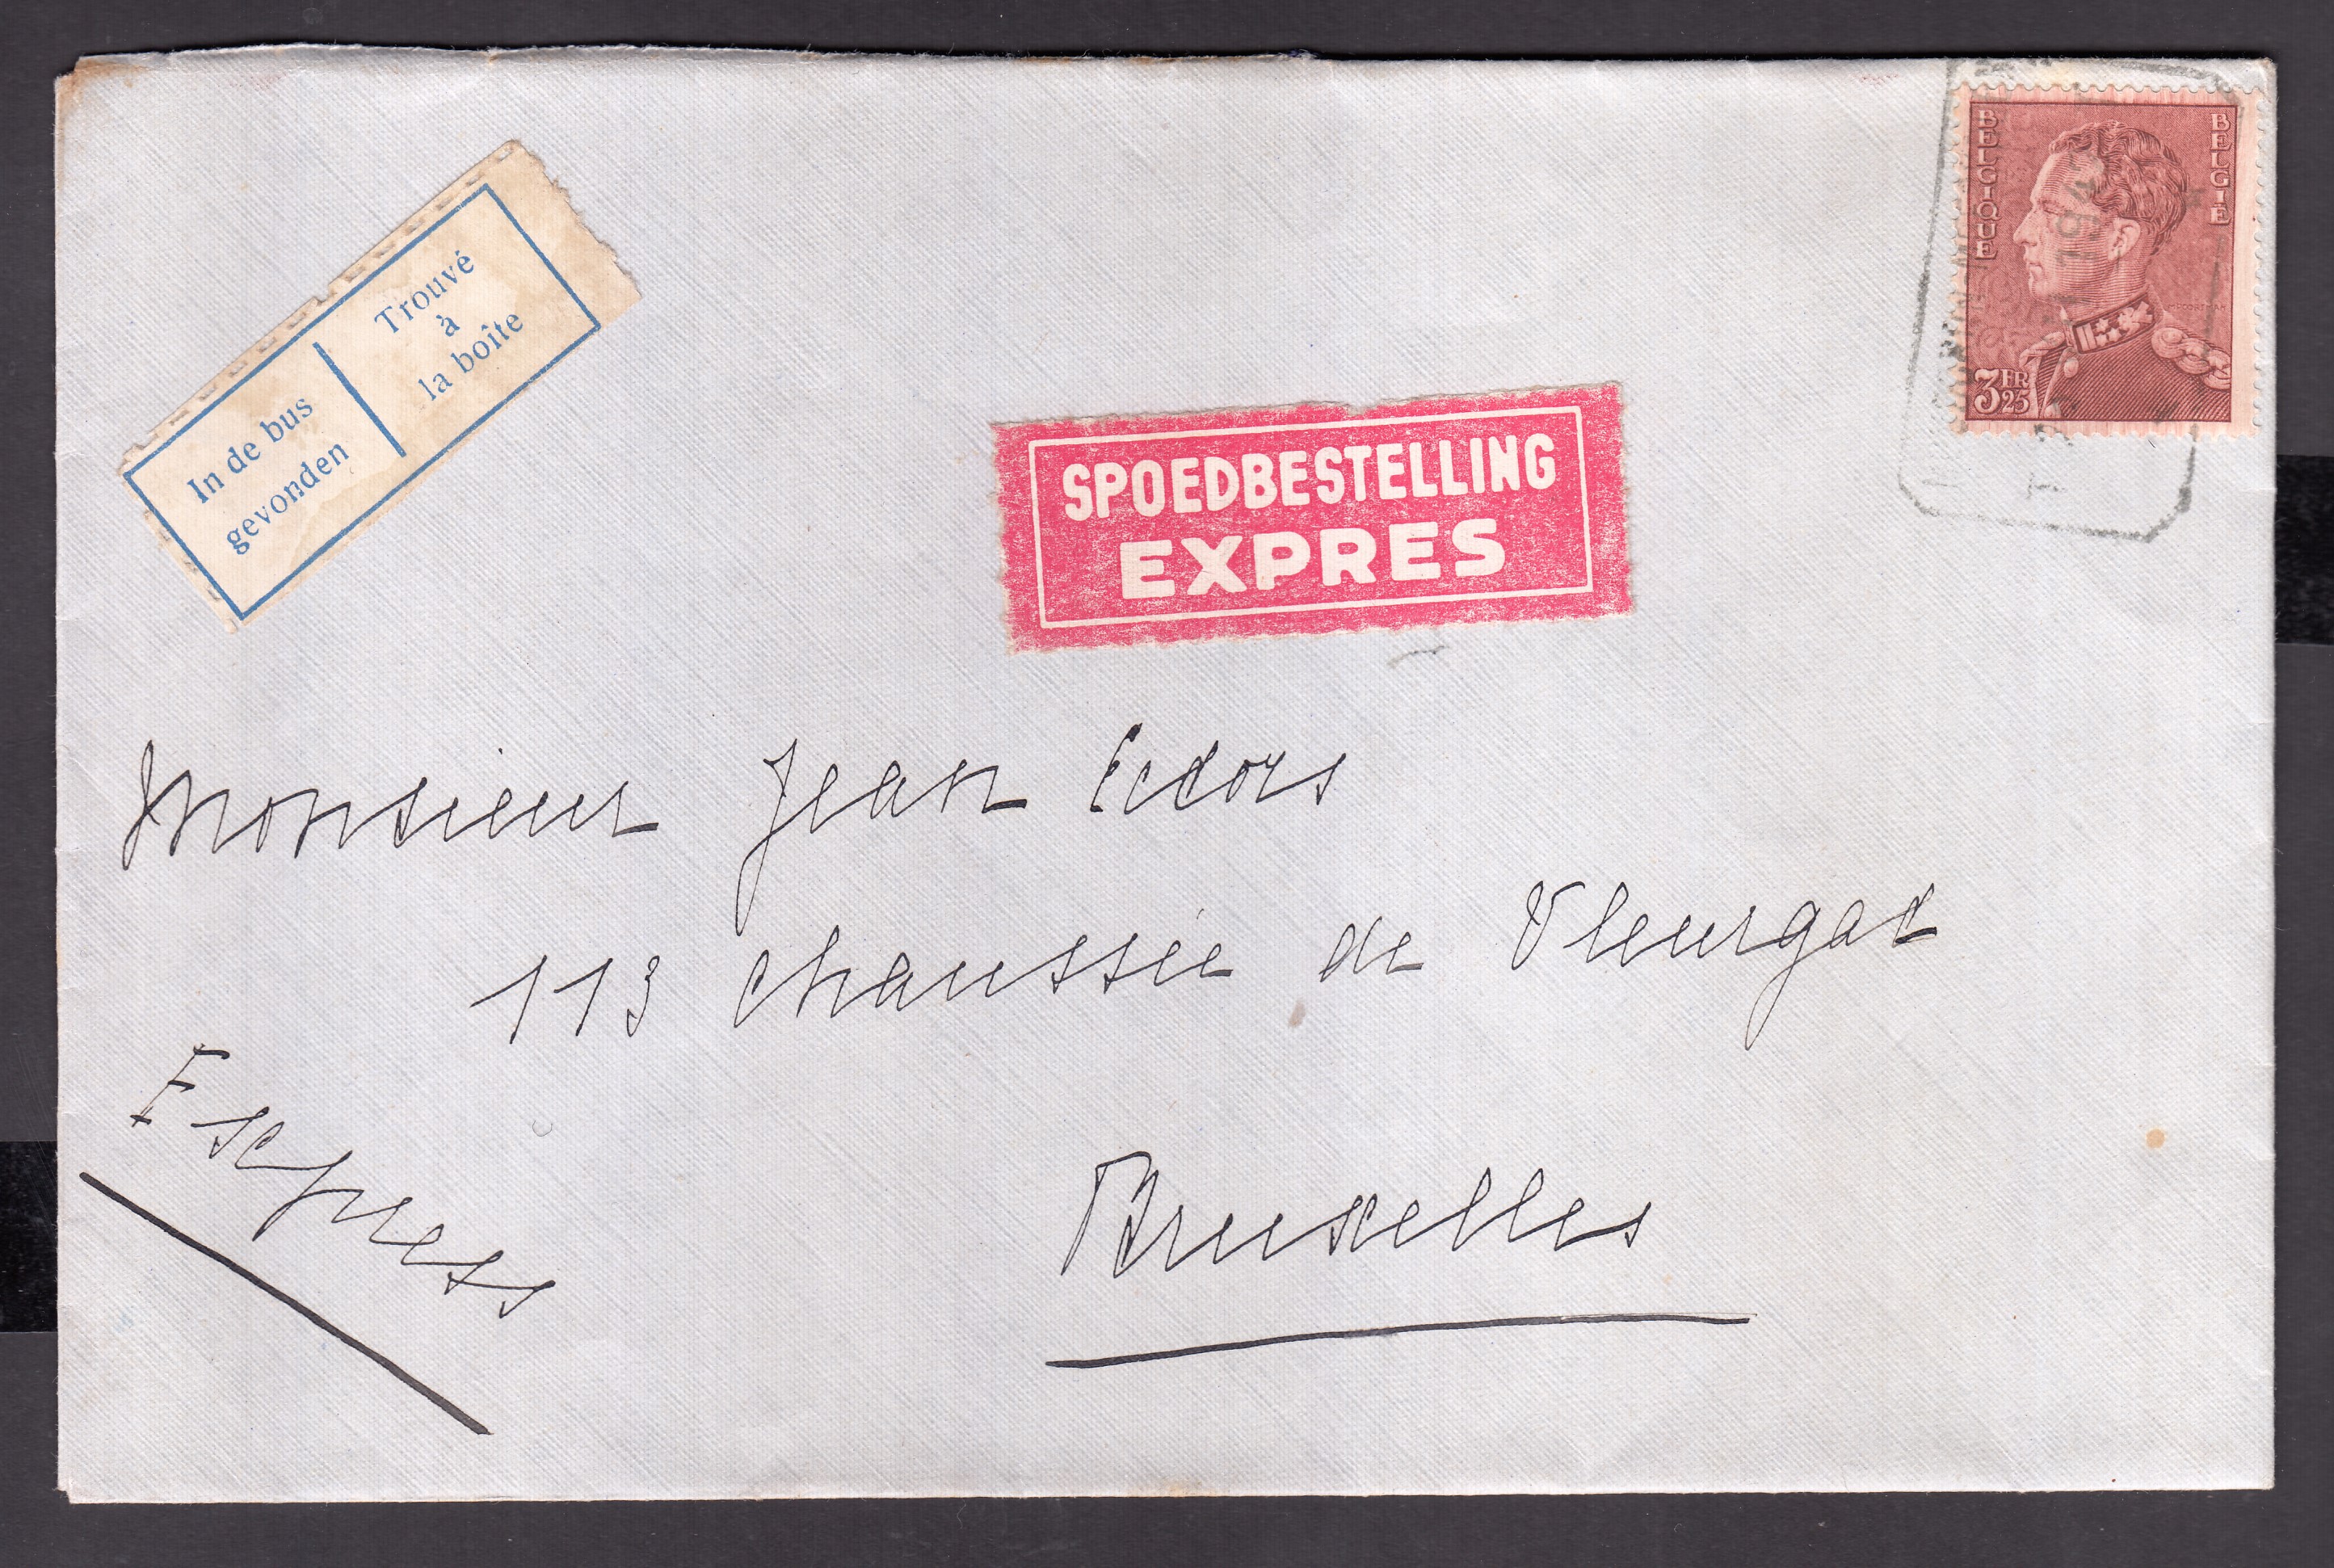 In de bus
gevonden
Trouvé
à
la boîte
SPOEDBESTELLING
EXPRES
BELGIQUE
BELGIË
3 FR 25
Monsieur Jean Ectors
113 chaussée de Vleurgat
Express
Bruxelles